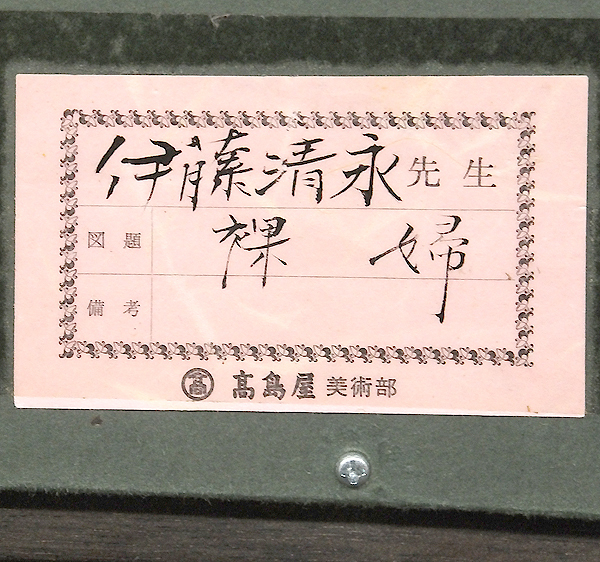 伊藤清永先生
図題 裸婦
備考
髙 髙島屋美術部